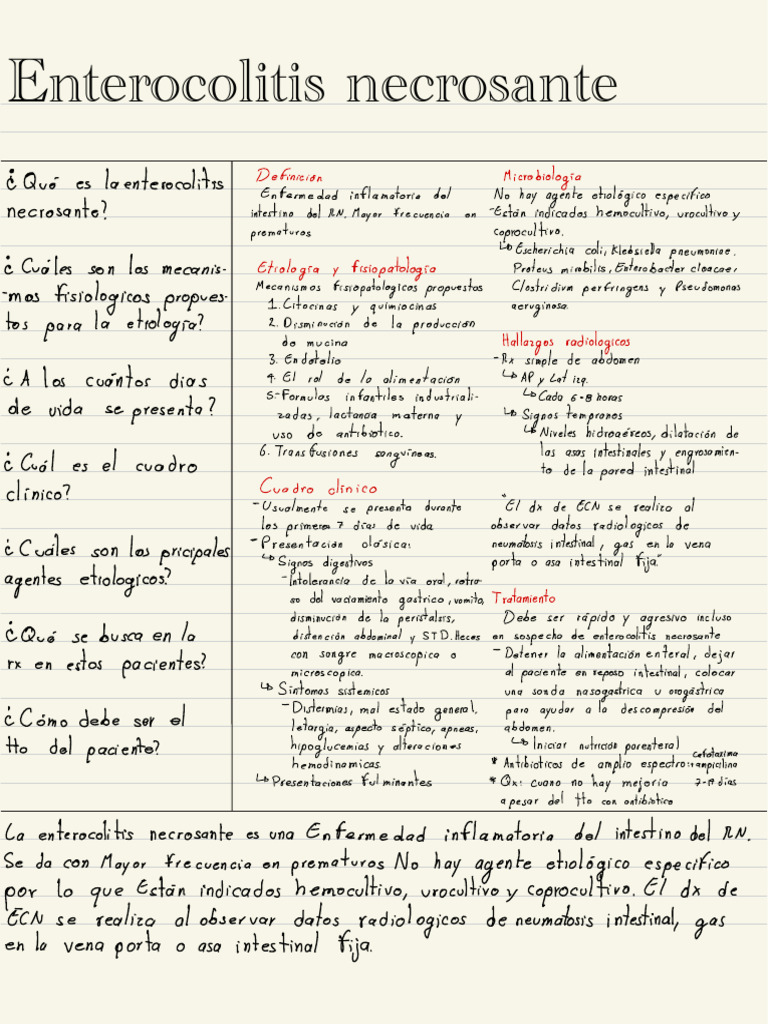 Enterocolitis necrosante
¿Qué es la enterocolitis
necrosante?
¿Cuáles son los mecanis-
-mos fisiologicos propues-
tos para la etiología?
¿A los cuántos dias
de vida se presenta?
¿Cuál es el cuadro
clínico?
¿Cuáles son los pricipales
agentes etiologicos?
¿Qué se busca en la
rx en estos pacientes?
¿Cómo debe ser el
tto del paciente?
Definición
Enfermedad inflamatoria del
intestino del RN. Mayor frecuencia en
prematuros
Etiología y fisiopatología
Mecanismos fisiopatologicos propuestos
1. Citocinas y quimiocinas
2. Disminución de la producción
de mucina
3. Endotelio
4. El rol de la alimentación
5.- Formulas infantiles industriali-
zadas, lactancia materna y
uso de antibiotico.
6. Transfusiones sanguineas.
Cuadro clinico
- Usualmente se presenta durante
los primeros 7 dias de vida
- Presentación clásica:
↳ Signos digestivos
- Intolerancia de la via oral, retra-
so del vaciamiento gastrico, vomito,
disminución de la peristalsis,
distención abdominal y STD. Heces
con sangre macroscopica o
microscopica.
↳ Sintomas sistemicos
- Distermias, mal estado general,
letargia, aspecto séptico, apneas,
hipoglucemias y alteraciones
hemodinamicas.
↳ Presentaciones fulminantes
Microbiología
No hay agente etiológico especifico
- Están indicados hemocultivo, urocultivo y
coprocultivo.
↳ Escherichia coli, Klebsiella pneumoniae.
Proteus mirabilis, Enterobacter cloacae,
Clostridium perfringens y Pseudomonas
aeruginosa.
Hallazgos radiologicos
- Rx simple de abdomen
↳ AP y Lat izq.
↳ Cada 6-8 horas
↳ Signos tempranos
↳ Niveles hidroaéreos, dilatación de
las asas intestinales y engrosamien-
to de la pared intestinal
"El dx de ECN se realiza al
observar datos radiologicos de
neumatosis intestinal, gas en la vena
porta o asa intestinal fija"
Tratamiento
Debe ser rápido y agresivo incluso
en sospecha de enterocolitis necrosante
- Detener la alimentación enteral, dejar
al paciente en reposo intestinal, colocar
una sonda nasogastrica u orogástrica
para ayudar a la descompresión del
abdomen.
↳ Iniciar nutrición parenteral
* Antibioticos de amplio espectro: cefotaxima + ampicilina
* Qx: cuano no hay mejoria 7-14 dias
a pesar del tto con antibiotico
La enterocolitis necrosante es una Enfermedad inflamatoria del intestino del RN.
Se da con Mayor frecuencia en prematuros No hay agente etiológico especifico
por lo que Están indicados hemocultivo, urocultivo y coprocultivo. El dx de
ECN se realiza al observar datos radiologicos de neumatosis intestinal, gas
en la vena porta o asa intestinal fija.